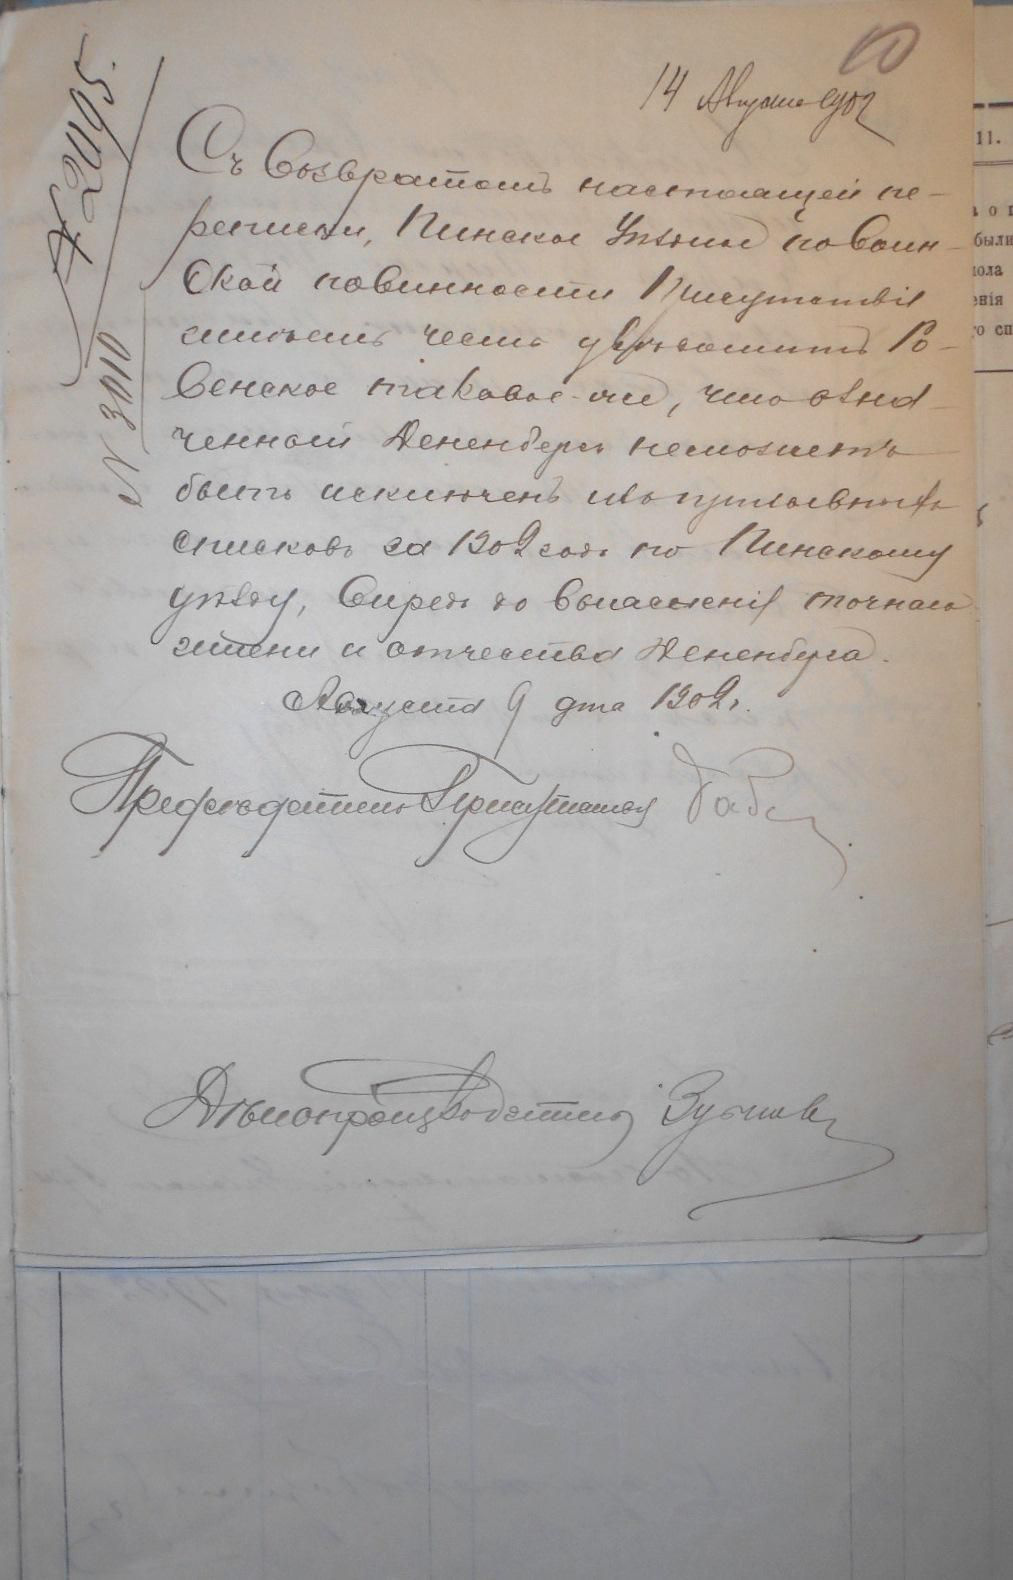 10
14 Августа 902
№ 2095.
№ 3010
Съ возвратомъ настоящей пе-
реписки, Пинское Уѣздное по воин-
ской повинности Присутствіе
имѣетъ честь увѣдомить Ро-
венское таковое-же, что озна-
ченный Дененбергъ не можетъ
быть исключенъ изъ призывныхъ
списковъ за 1902 годъ по Пинскому
уѣзду, впредь до выясненія точнаго
имени и отчества Дененберга.
Августа 9 дня 1902 г.
Предсѣдатель Присутствія
Дѣлопроизводитель
11.
были